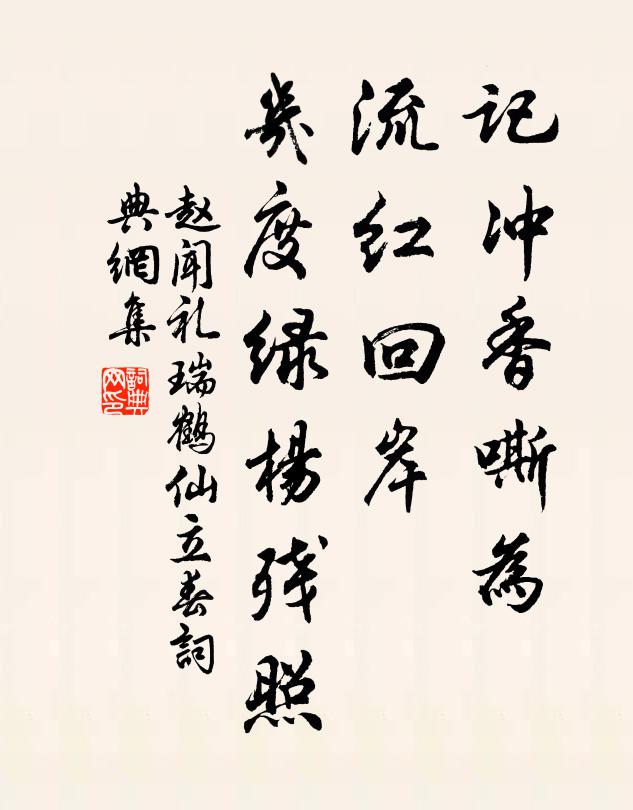 记冲香嘶马
流红回岸
几度绿杨残照
赵闻礼瑞鹤仙立春词
典網集
詞典網印